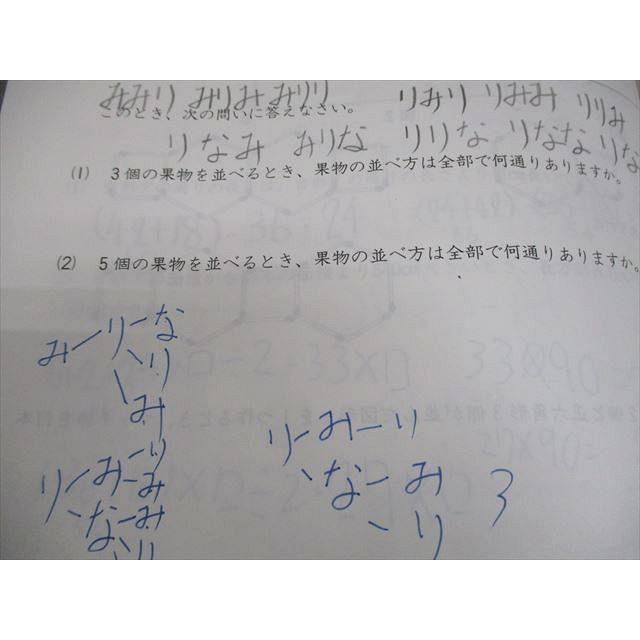 みみり みりみ みりり りみり りみみ りりみ
このとき、次の問いに答えなさい。
りなみ みりな りりな りなな りな
(1) 3個の果物を並べるとき、果物の並べ方は全部で何通りありますか。
(2) 5個の果物を並べるとき、果物の並べ方は全部で何通りありますか。
み りーな
り
み
りーみーり
なーみ
り
3
りーみーり
み
なーみ
り